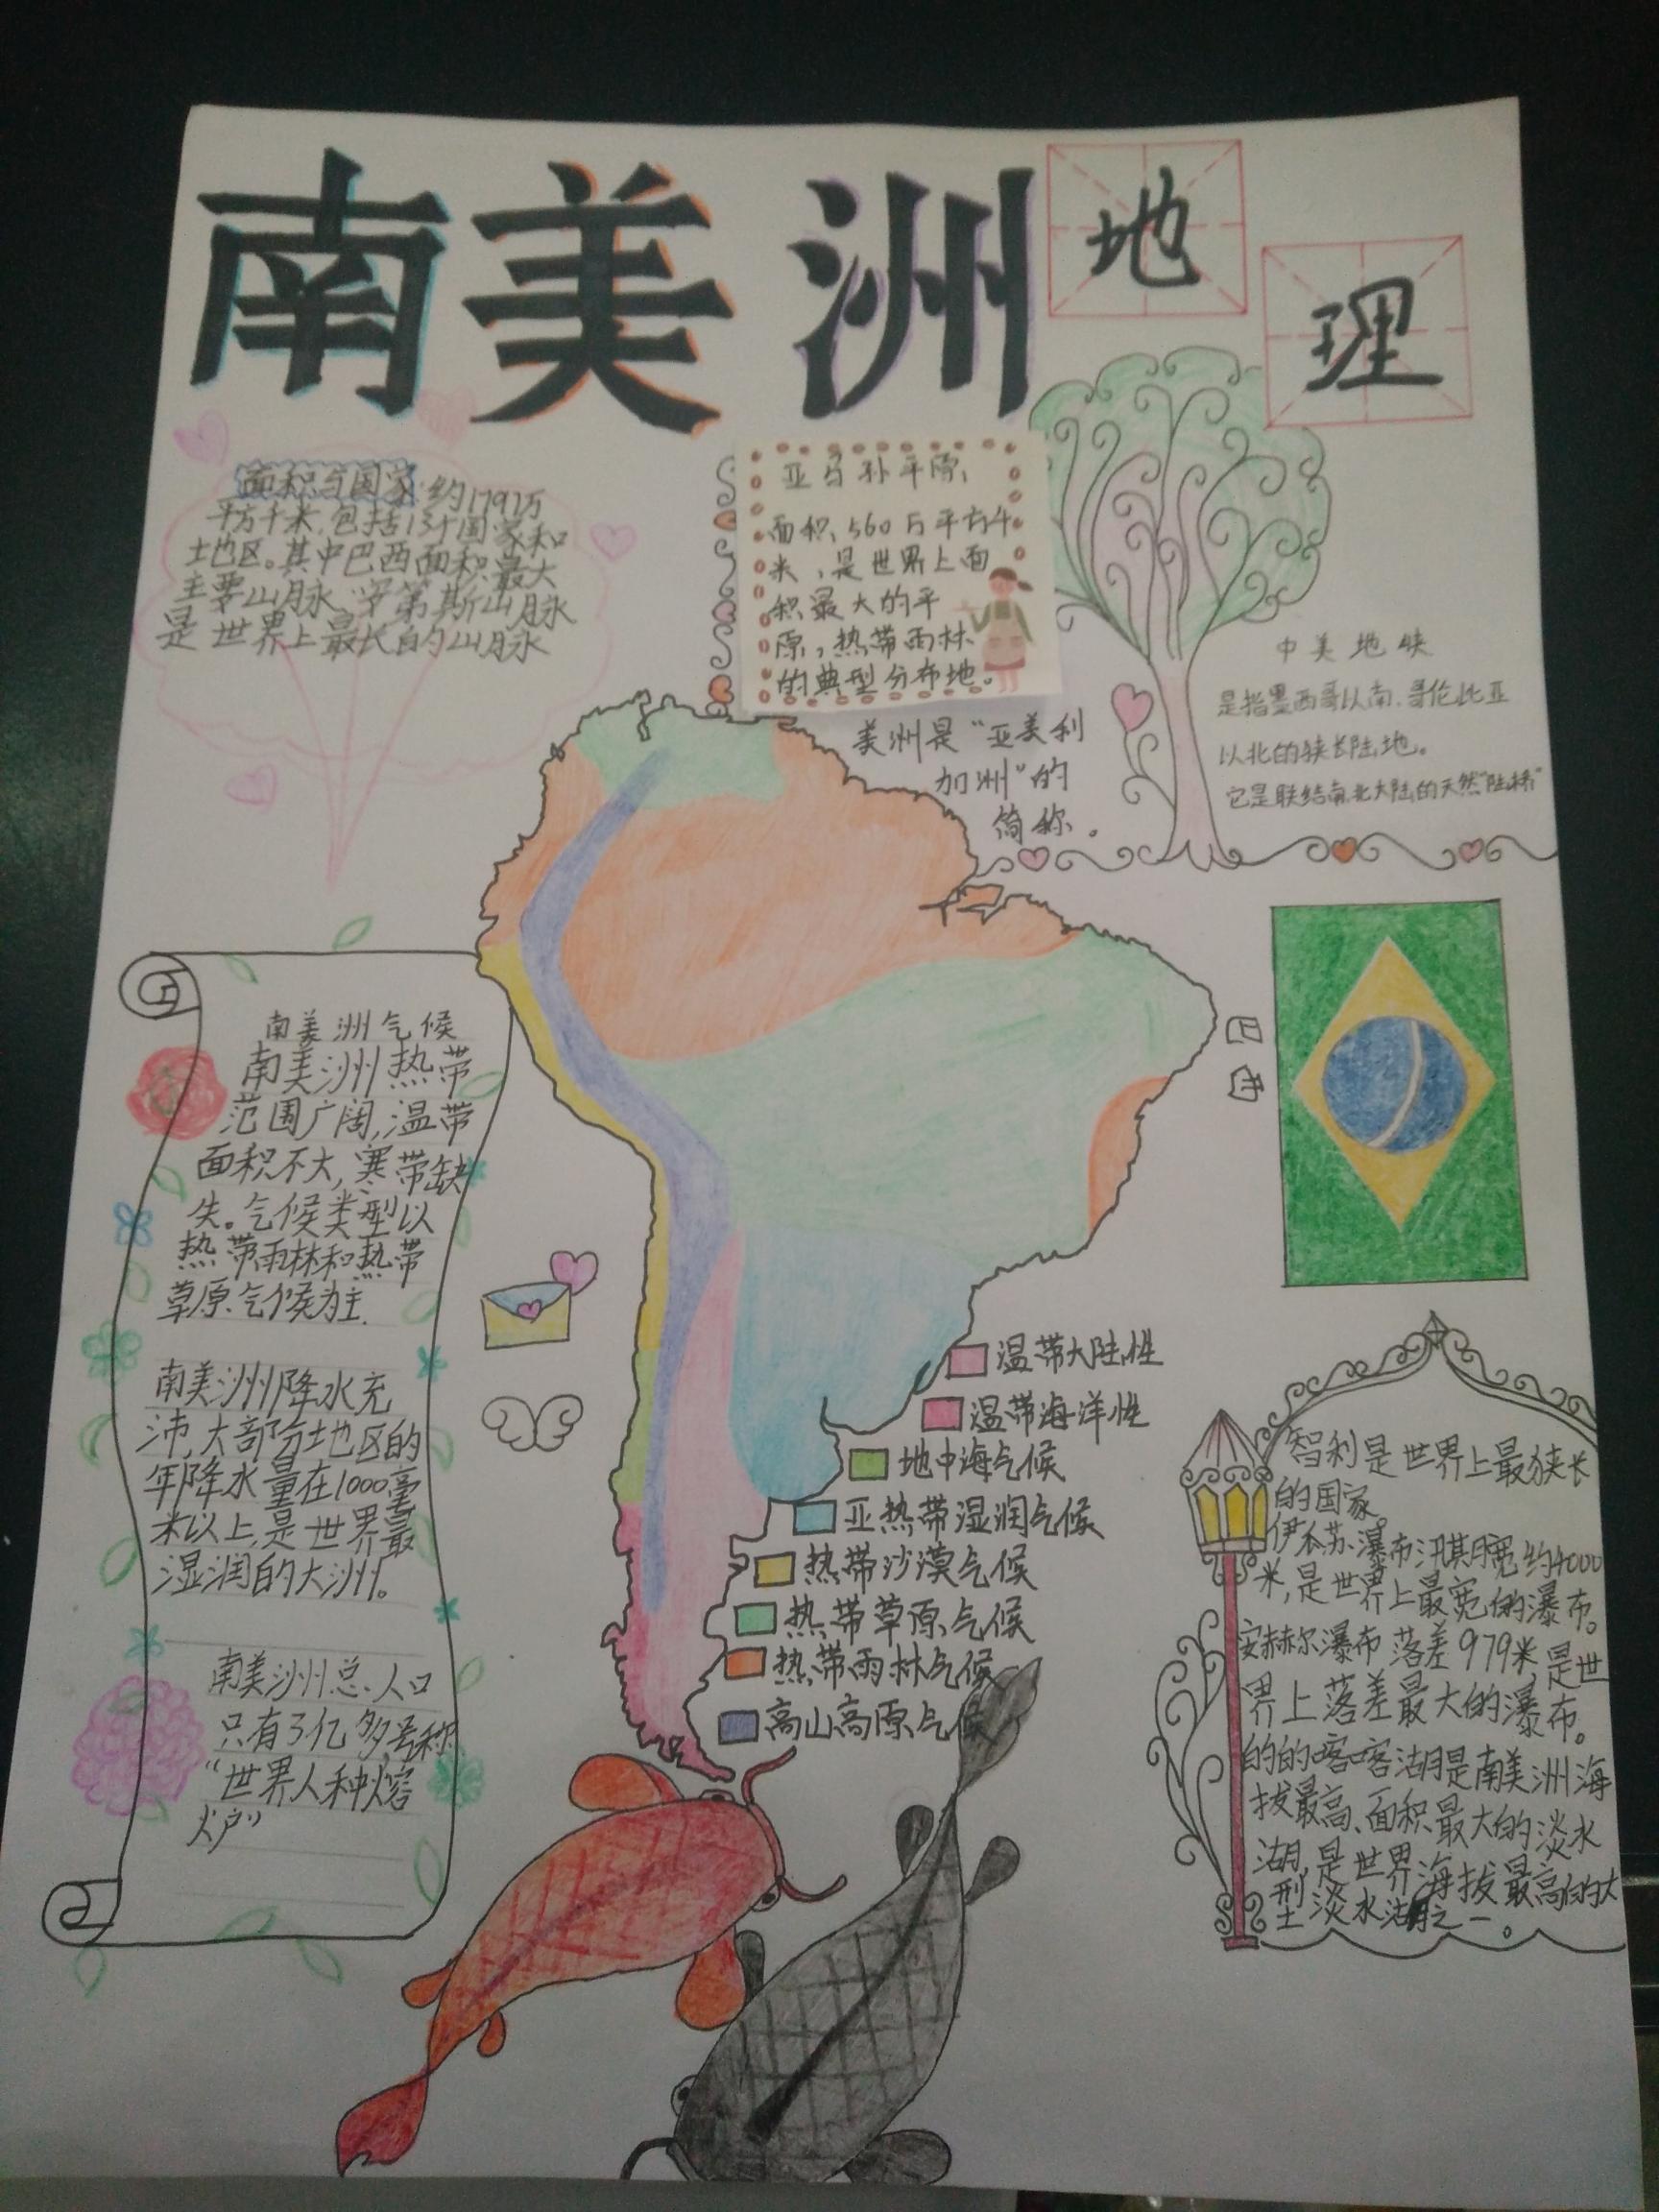 南美洲
地
理
面积与国家:约1797万
平方千米,包括13个国家和
地区。其中巴西面积最大
主要山脉:安第斯山脉
是世界上最长的山脉
亚马孙平原:
面积:560万平方千
米,是世界上面
积最大的平
原,热带雨林
的典型分布地。
美洲是“亚美利
加洲”的
简称。
中美地峡
是指墨西哥以南、哥伦比亚
以北的狭长陆地。
它是联结南北大陆的天然“陆桥”
巴西
南美洲气候
南美洲热带
范围广阔,温带
面积不大,寒带缺
失。气候类型以
热带雨林和热带
草原气候为主.
南美洲降水充
沛,大部分地区的
年降水量在1000毫
米以上,是世界最
湿润的大洲。
南美洲总人口
只有3亿多,号称
“世界人种熔
炉”
温带大陆性
温带海洋性
地中海气候
亚热带湿润气候
热带沙漠气候
热带草原气候
热带雨林气候
高山高原气候
智利是世界上最狭长
的国家。
伊瓜苏瀑布汛期宽约4000
米,是世界上最宽的瀑布。
安赫尔瀑布落差979米是世
界上落差最大的瀑布。
的的喀喀湖是南美洲海
拔最高、面积最大的淡水
湖,是世界海拔最高的大
型淡水湖之一。